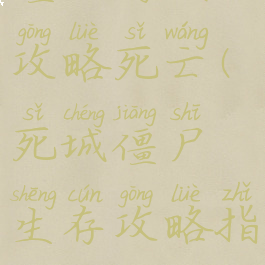 gōng lüè sǐ wáng
攻略死亡(
sǐ chéng jiāng shī
死城僵尸
shēng cún gōng lüè zhǐ
生存攻略指